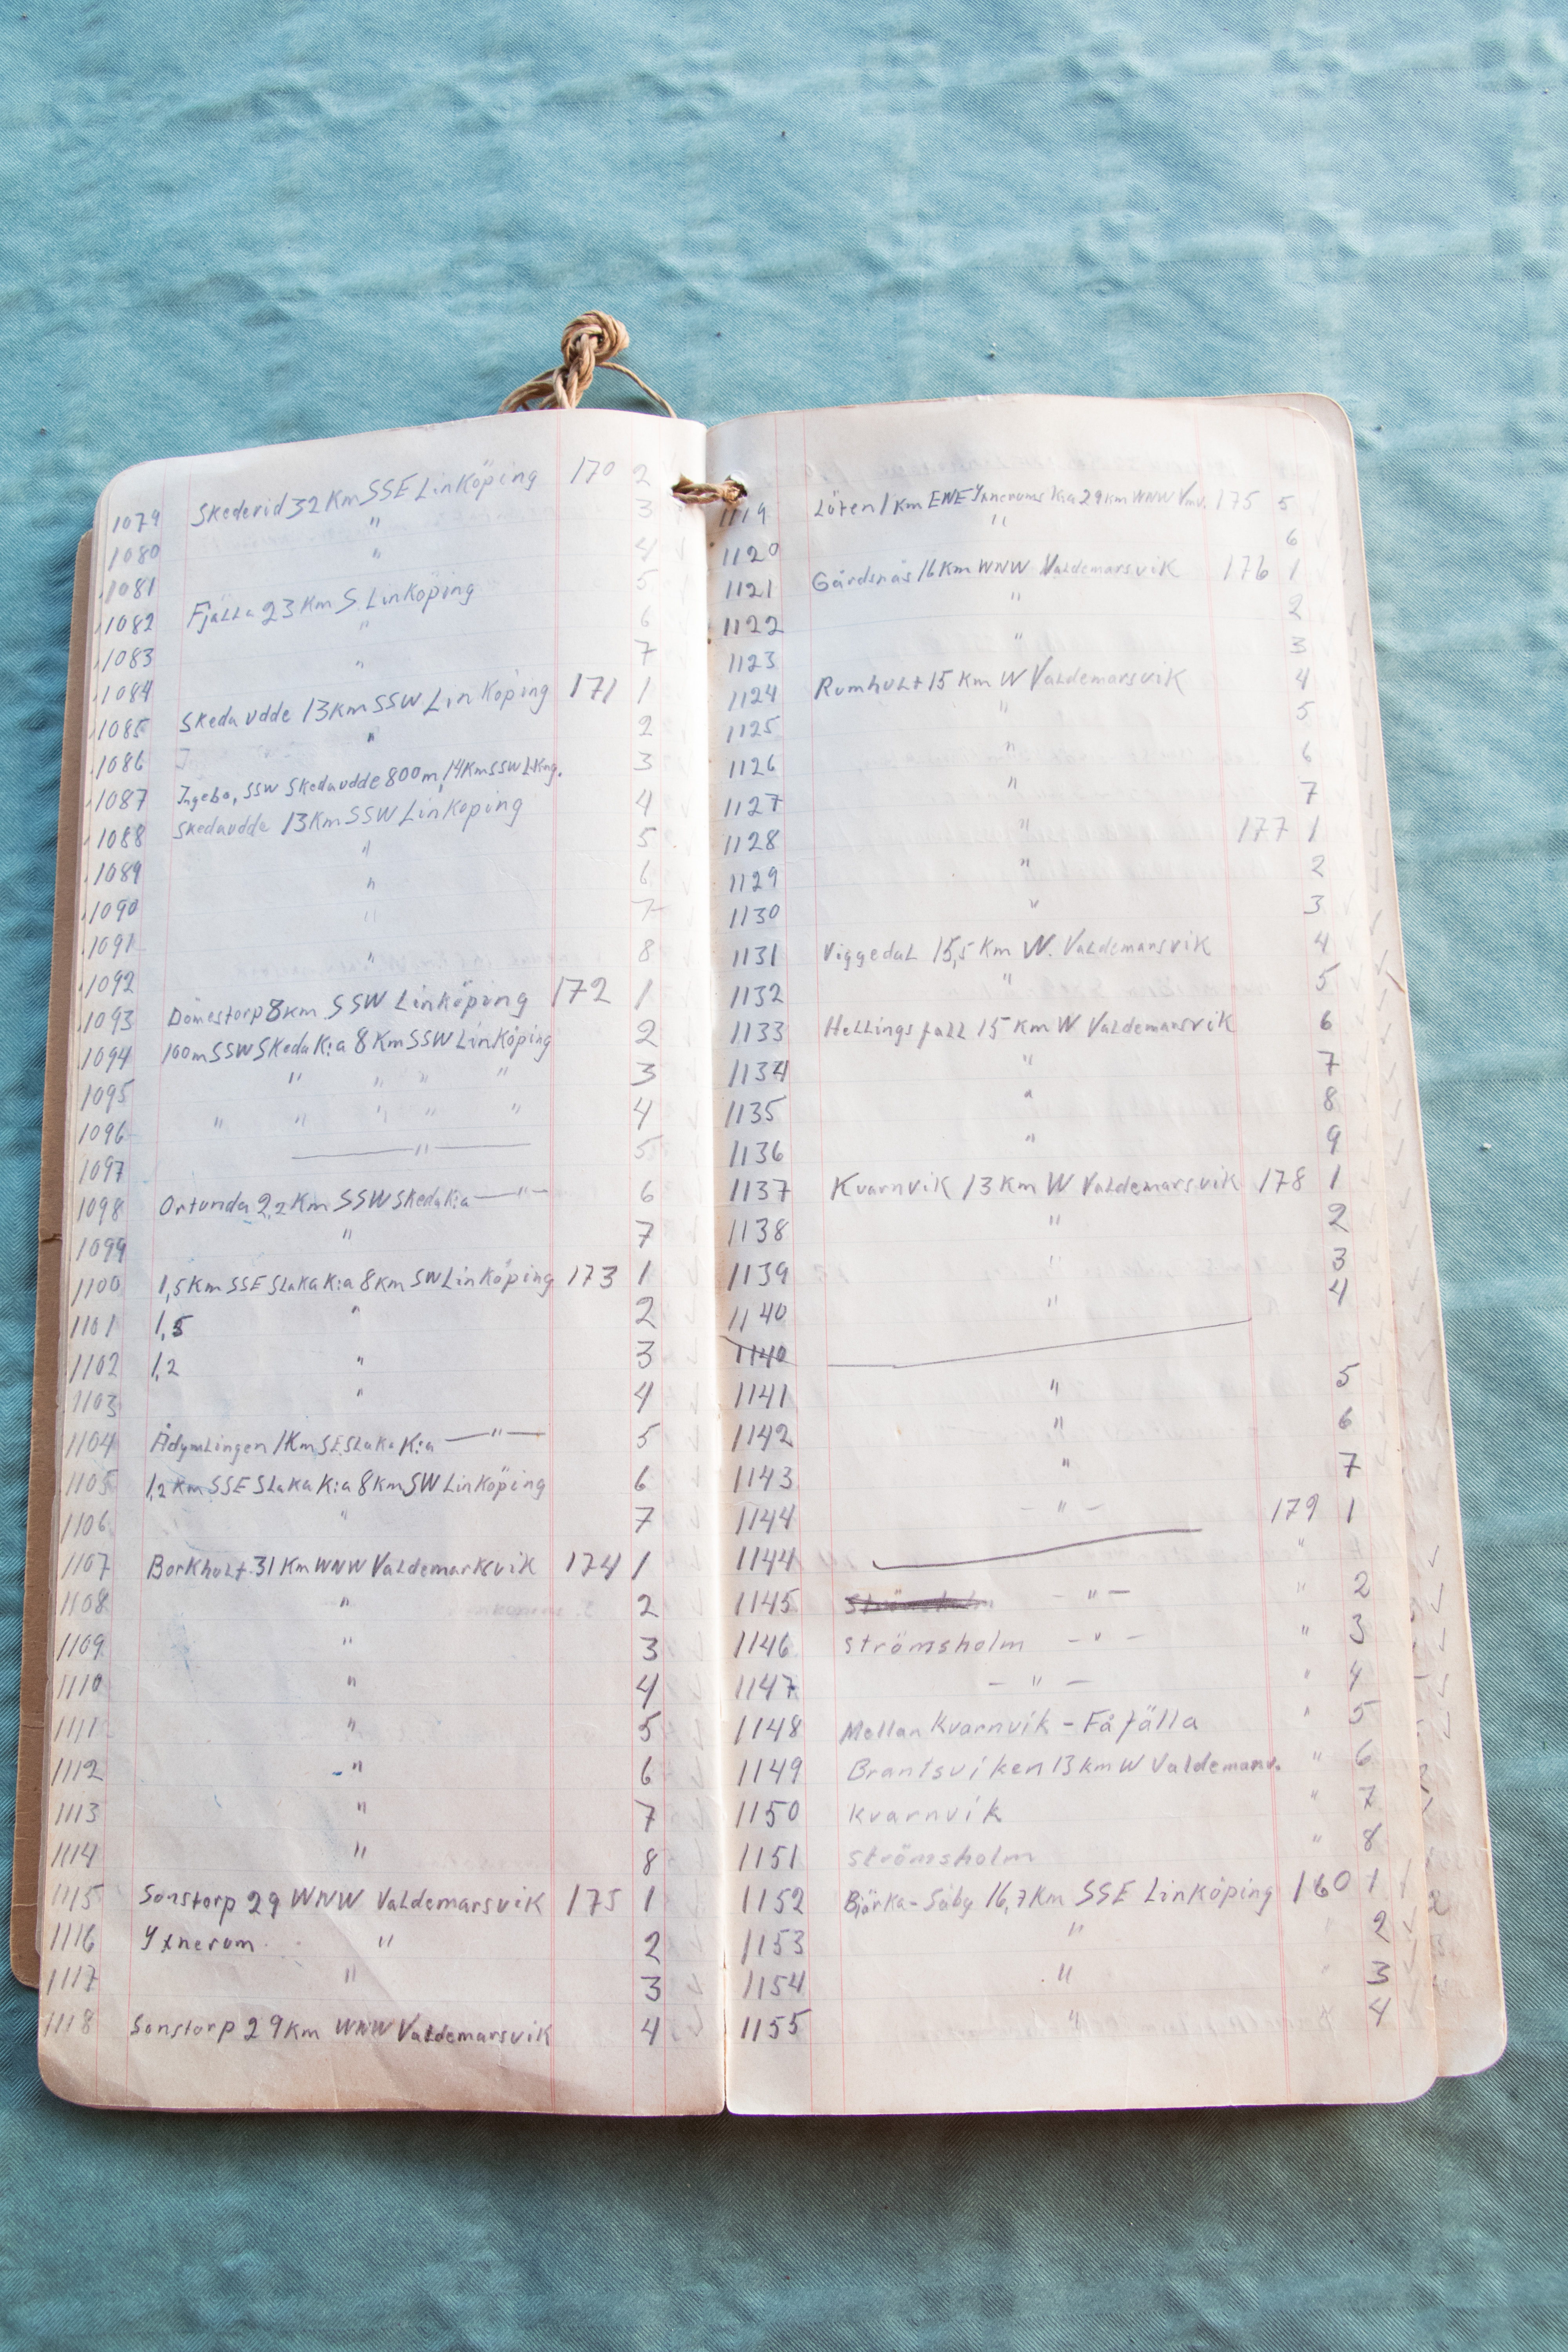 1079 Skederid 32 Km SSE Linköping 170 2
1080 " 3
1081 " 4
1082 Fjälla 23 Km S Linköping 5
1083 " 6
1084 " 7
1085 Skeda udde 13 Km SSW Linköping 171 1
1086 " 2
1087 Ingebo, SSW Skedaudde 800 m, 14 Km SSW Lkng. 3
1088 Skedaudde 13 Km SSW Linköping 4
1089 " 5
1090 " 6
1091 " 7
1092 " 8
1093 Domestorp 8 km SSW Linköping 172 1
1094 100 m SSW Skeda K:a 8 Km SSW Linköping 2
1095 " " " " 3
1096 " " " " " 4
1097 — " — 5
1098 Ortunda 2,2 Km SSW Skeda K:a — " — 6
1099 " 7
1100 1,5 Km SSE Slaka K:a 8 Km SW Linköping 173 1
1101 1,5 " 2
1102 1,2 " 3
1103 " 4
1104 Ådymlingen 1 Km SE Slaka K:a — " — 5
1105 1,2 Km SSE Slaka K:a 8 Km SW Linköping 6
1106 " 7
1107 Borkhult 31 Km WNW Valdemarkvik 174 1
1108 " 2
1109 " 3
1110 " 4
1111 " 5
1112 " 6
1113 " 7
1114 " 8
1115 Sonstorp 29 WNW Valdemarsvik 175 1
1116 Yxnerum " 2
1117 " 3
1118 Sonstorp 29 Km WNW Valdemarsvik 4
1119 Löten 1 Km ENE Yxnerums K:a 29 Km WNW Vmv. 175 5
1120 " 6
1121 Gårdsnäs 16 Km WNW Valdemarsvik 176 1
1122 " 2
1123 " 3
1124 Rumhult 15 Km W Valdemarsvik 4
1125 " 5
1126 " 6
1127 " 7
1128 " 177 1
1129 " 2
1130 " 3
1131 Viggedal 15,5 Km W. Valdemarsvik 4
1132 " 5
1133 Hellingsfall 15 Km W Valdemarsvik 6
1134 " 7
1135 " 8
1136 " 9
1137 Kvarnvik 13 Km W Valdemarsvik 178 1
1138 " 2
1139 " 3
1140 " 4
1140
1141 " 5
1142 " 6
1143 " 7
1144 - " - 179 1
1144 "
1145 - " - " 2
1146 Strömsholm - " - " 3
1147 - " - " 4
1148 Mellan Kvarnvik - Fåfälla " 5
1149 Brantsviken 13 km W Valdemarv. " 6
1150 Kvarnvik " 7
1151 Strömsholm " 8
1152 Bjärka-Säby 16,7 Km SSE Linköping 160 1
1153 " 2
1154 " 3
1155 " 4